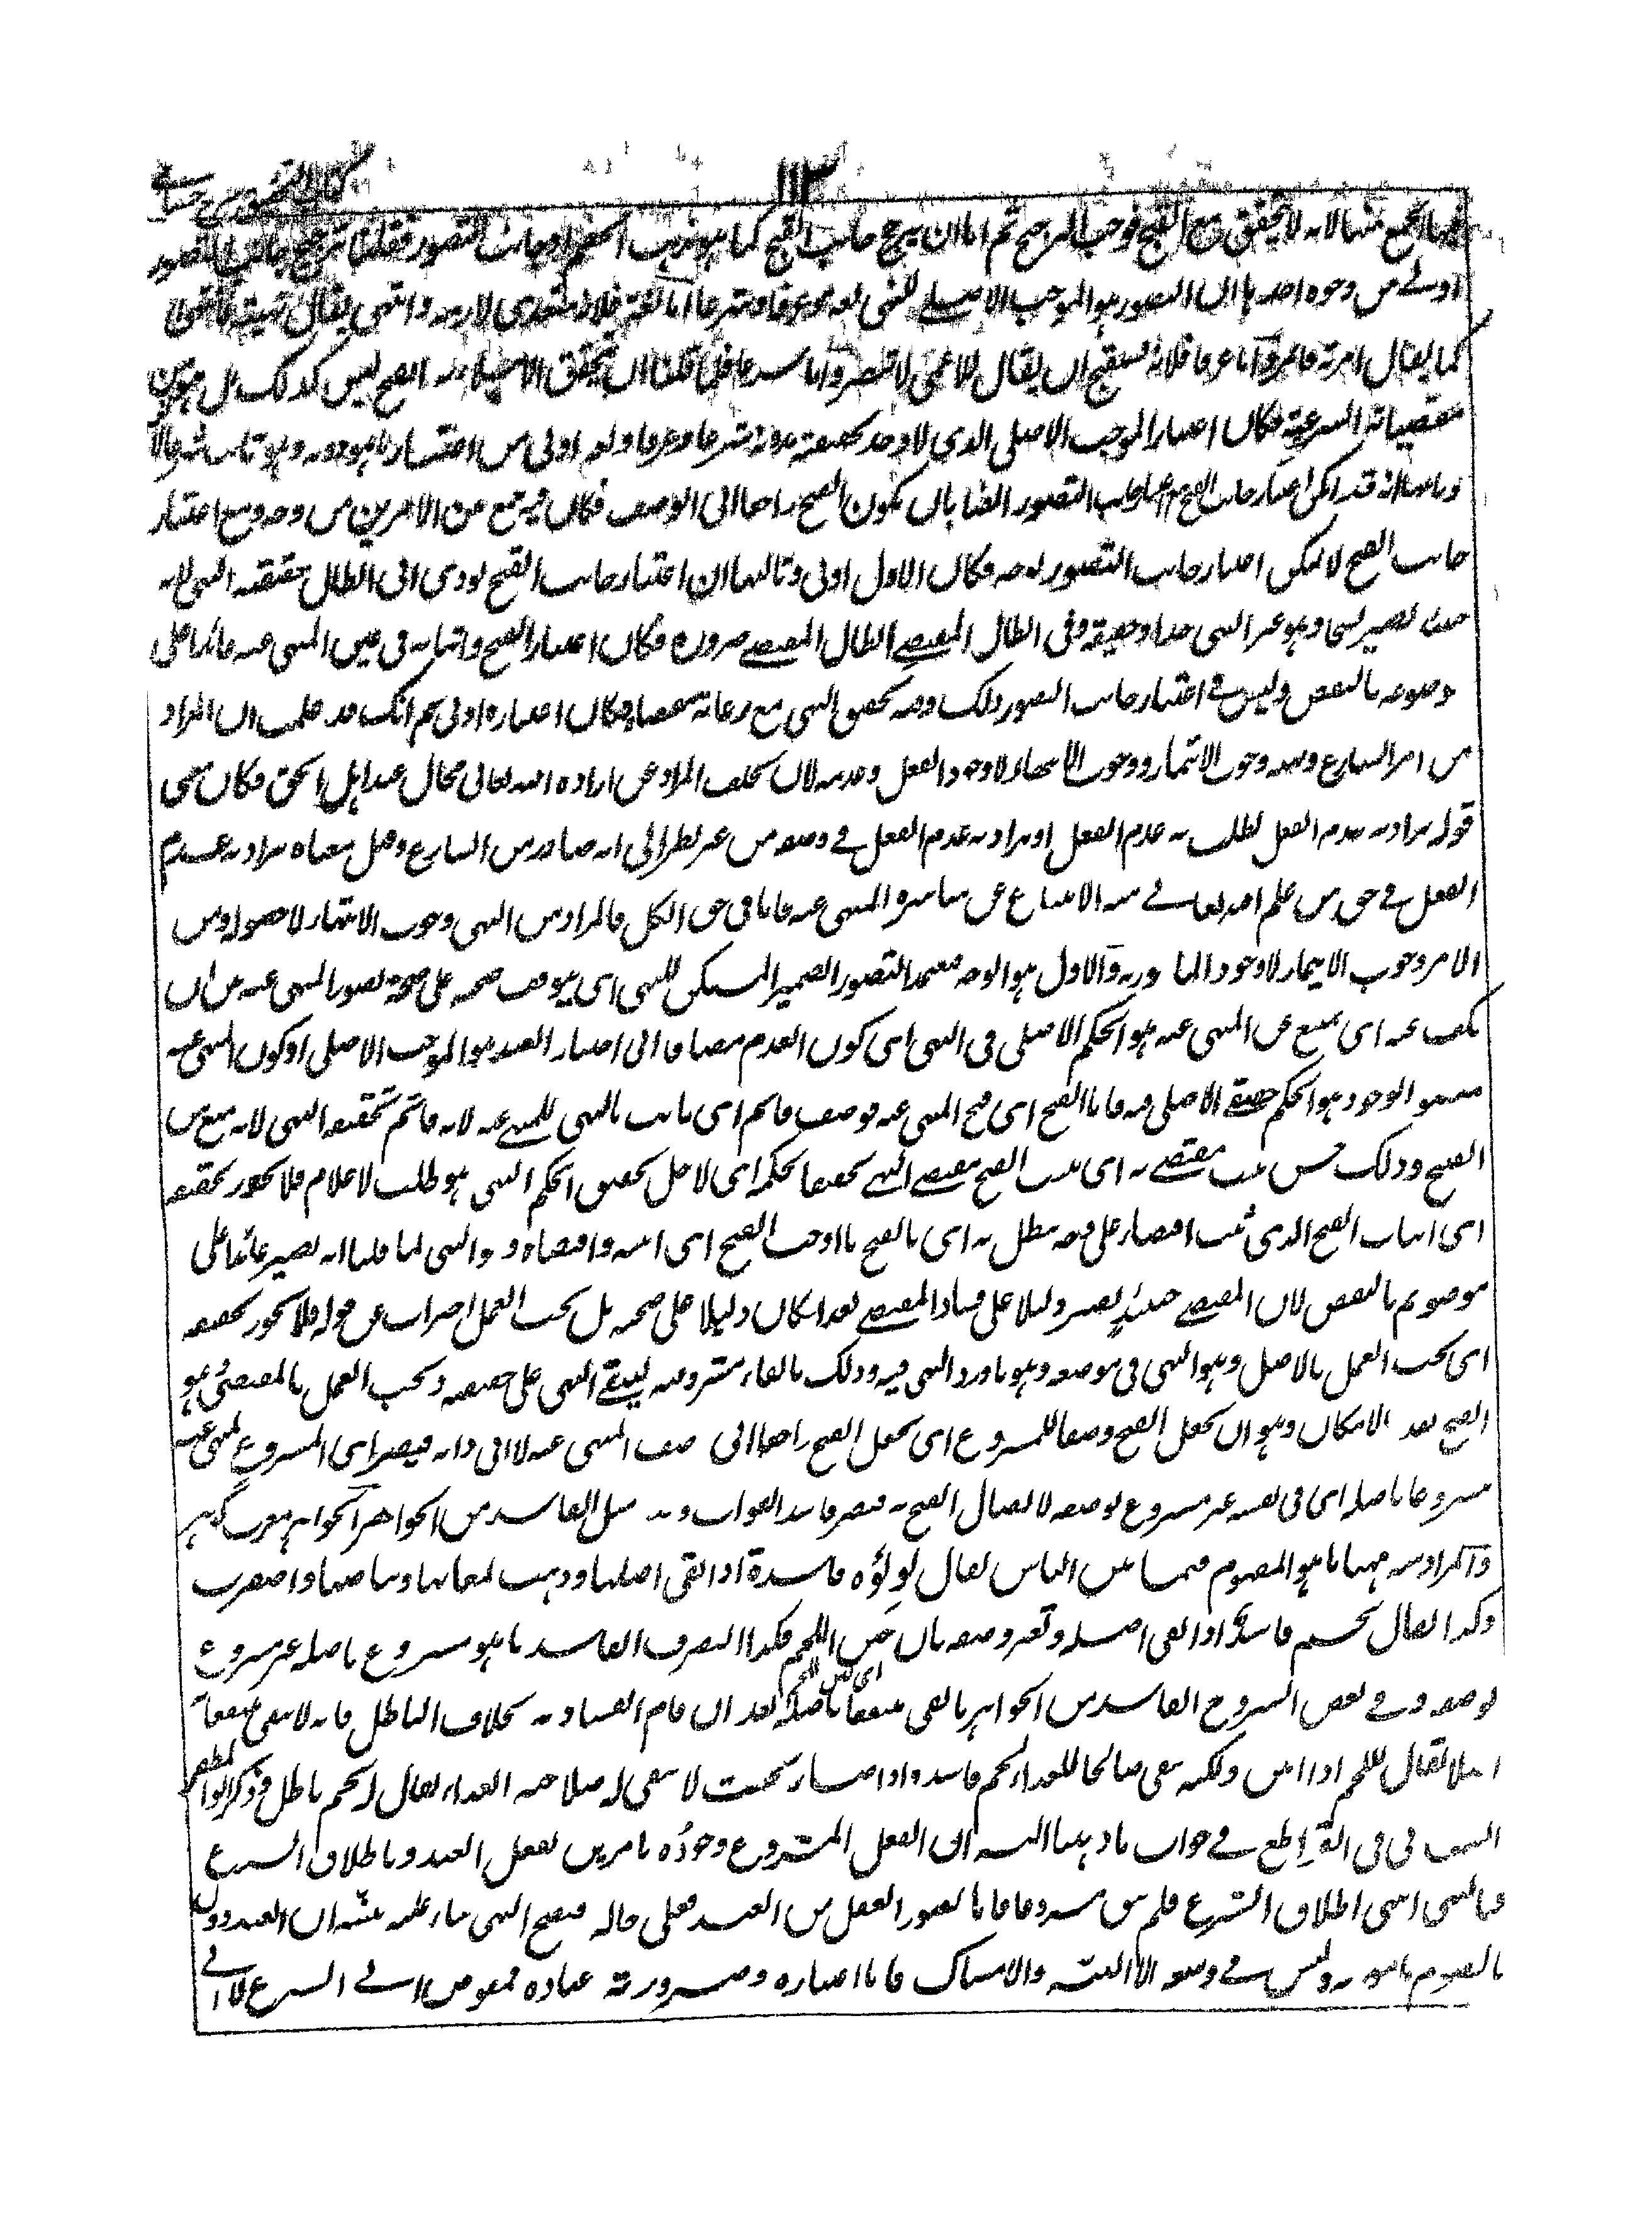 ١١٣
الجمع بينهما لانه لا يتحقق مع القبح فوجب الترجيح ثم اما ان يرجح جانب القبح كما هو مذهب الخصم او جانب التصور فقلنا ترجيح جانب التصور
اولى من وجوه احدها ان التصور هو الموجب الاصلي للنهي لغة وعرفا وشرعا اما لغة فلانه متعدي لازمه انتهى يقال نهيته فانتهى
كما يقال امرته فائتمر واما عرفا فلانه يستقبح ان يقال للاعمى لا تبصر واما شرعا فلما قلنا ان تحقق الابتلاء به القبح ليس كذلك بل هو من
مقتضياته الشرعية فكان اعتبار الموجب الاصلي الذي لا وجد حقيقته بدونه شرعا وعرفا ولغة اولى من اعتبار ما هو دونه وهو ثابت شرعا لا
وثانيها انه قد امكن اعتبار جانب القبح مع اعتبار جانب التصور ايضا بان يكون القبح راجعا الى الوصف فكان فيه جمع بين الامرين من وجه ومع اعتبار
جانب القبح لا يمكن اعتبار جانب التصور بوجه فكان الاول اولى وثالثها ان اعتبار جانب القبح يؤدي الى ابطال حقيقة النهي لانه
حينئذ يصير نسخا وهو غير النهي حدا وحقيقة وفي ابطال المقتضي ابطال المقتضى ضرورة فكان اعتبار القبح واثباته في عين المنهي عنه عائدا على
موضوعه بالنقض وليس في اعتبار جانب التصور ذلك وفيه تحقق النهي مع رعاية مقتضاه فكان اعتباره اولى ثم انك قد علمت ان المراد
من امر الشارع ونهيه وجوب الائتمار ووجوب الانتهاء لا وجود الفعل وعدمه لان تخلف المراد عن ارادة الله تعالى محال عند اهل الحق فكان معنى
قوله يراد به عدم الفعل يطلب به عدم الفعل او يراد به عدم الفعل في وضعه من غير نظر الى انه صادر من الشارع وقيل معناه يراد به عدم
الفعل في حق من علم الله تعالى منه الامتناع عن مباشرة المنهي عنه فاما في حق الكل فالمراد من النهي وجوب الانتهاء لا حصوله ومن
الامر وجوب الايتمار لا وجود المامور به والاول هو الوجه فيعتمد التصور الضمير المستكن للنهي اي يتوقف صحته على صحة تصور المنهي عنه من ان
يكف عنه اي يمتنع عن المنهي عنه هو الحكم الاصلي في النهي اي كون العدم مضافا الى اختيار العبد هو الموجب الاصلي او كون المنهي عنه
متصور الوجود هو الحكم الاصلي فيه فاما القبح اي قبح المنهي عنه فوصف قائم اي ثابت بالنهي للمنهي عنه لانه قائم بحقيقة النهي لانه منع من
القبح وذلك حسن يثبت مقتضى به اي يثبت القبح مقتضى النهي تحقيقا لحكمه اي لاجل تحقيق حكم النهي هو طلب الاعدام فلا يجوز تحقيقه
اي اثبات القبح الذي ثبت اقتضاء على وجه يبطل به اي بالقبح ما اوجب القبح اي اثبته واقتضاه وهو النهي لما قلنا انه يصير عائدا على
موضوعه بالنقض لان المقتضى حينئذ يصير دليلا على فساد المقتضي بعد ما كان دليلا على صحته بل يجب العمل اضراب عن قوله فلا يجوز تحقيقه
اي يجب العمل بالاصل وهو النهي في موضعه وهو ما ورد النهي فيه وذلك بابقاء مشروعيته ليبقى النهي على حقيقته ويجب العمل بالمقتضى وهو
القبح بقدر الامكان وهو ان يجعل القبح وصفا للمشروع اي يجعل القبح راجعا الى وصف المنهي عنه لا الى ذاته فيصير اي المشروع المنهي عنه
مشروعا باصله اي في نفسه غير مشروع بوصفه لاتصال القبح به فيصير فاسدا مثل الفاسد من الجواهر الجواهر معرب گوهر
والمراد منه ههنا ما هو المفهوم فيما بين الناس يقال لؤلؤة فاسدة اذا بقي اصلها وذهب لمعانها وبياضها واصفرت
وكذا يقال لحم فاسد اذا بقي اصله وتغير وصفه بان خنز اللحم فكذا التصرف الفاسد ما هو مشروع باصله غير مشروع
بوصفه وفي بعض الشروح الفاسد من الجواهر ما بقي منتفعا باصله بعد ان قام الفساد به بخلاف الباطل فانه لا يبقى منتفعا
اصلا يقال للحم اذا انتن ولكنه بقي صالحا للغذاء لحم فاسد واذا صار بحيث لا يبقى له صلاحية الغذاء يقال له لحم باطل وذكر ابو المظفر
السمعاني في القواطع في جواب ما ذهبنا اليه ان الفعل المشروع وجوده بامرين بفعل العبد وباطلاق الشرع
فبالنهي انتهى اطلاق الشرع فلم يبق مشروعا فاما تصور الفعل من العبد فعلى حاله فيصح النهي بناء عليه بينه ان العبد
بالصوم مامور به وليس في وسعه الا النية والامساك فاما اعتباره وصيرورته عبادة فمفوض الى الشرع لا الى